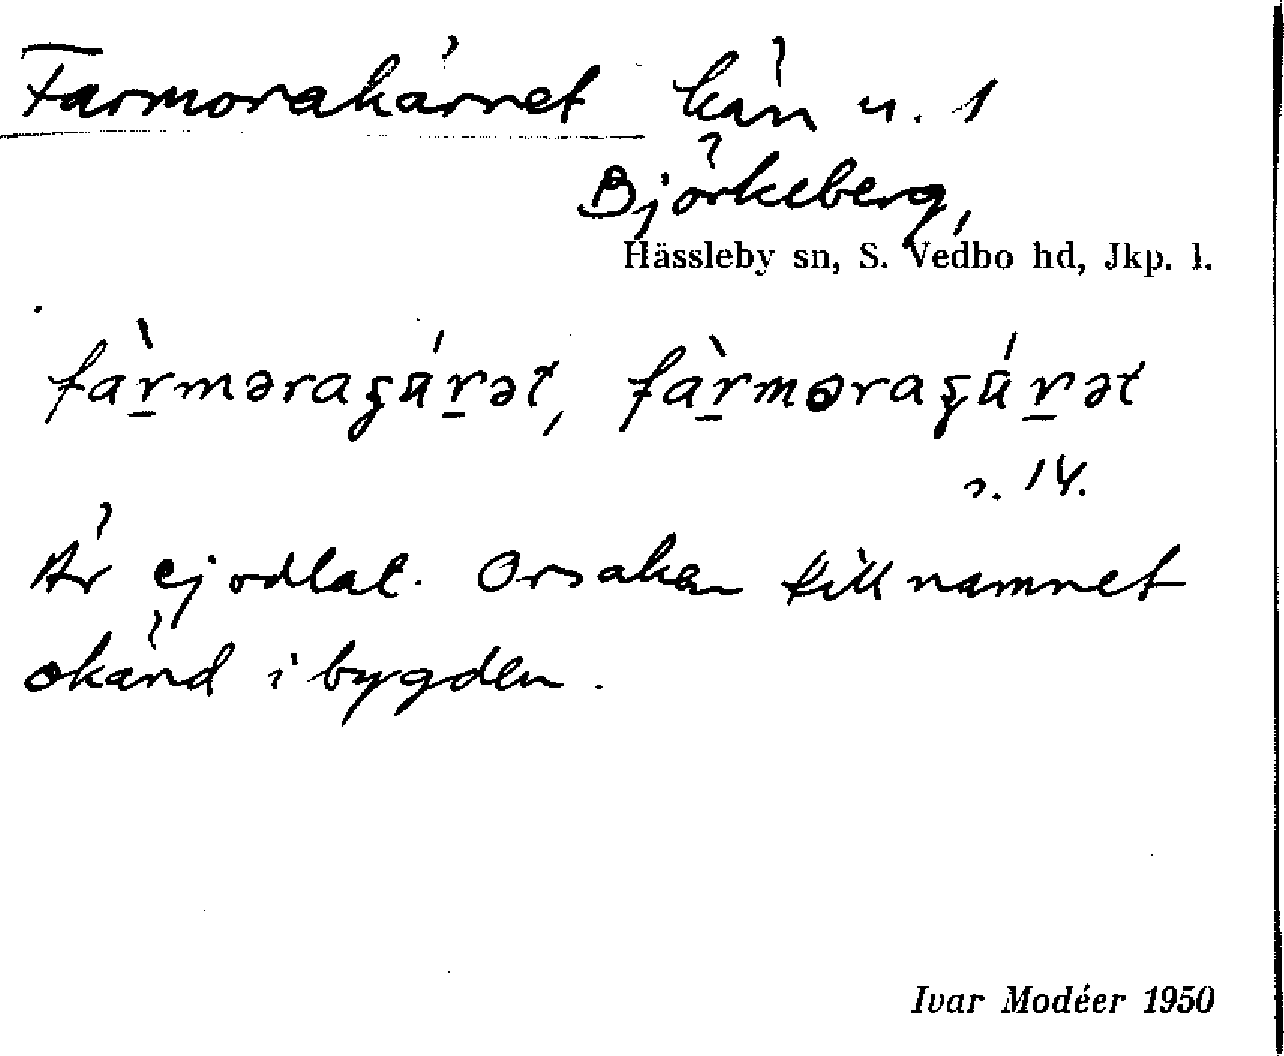 Farmorakärret kärr u. 1
Björkeberg,
Hässleby sn, S. Vedbo hd, Jkp. l.
s. 14.
Är ej odlat. Orsaken till namnet
okänd i bygden.
Ivar Modéer 1950